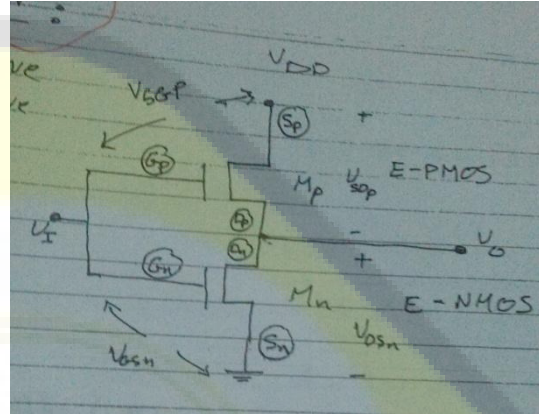 ve
ve
VDD
VSGP
Sp
+
Gp
Mp
VSDp
E-PMOS
Dp
-
VI
Dn
Vo
+
Gn
Mn
E-NMOS
VDSn
Sn
VGSn
-